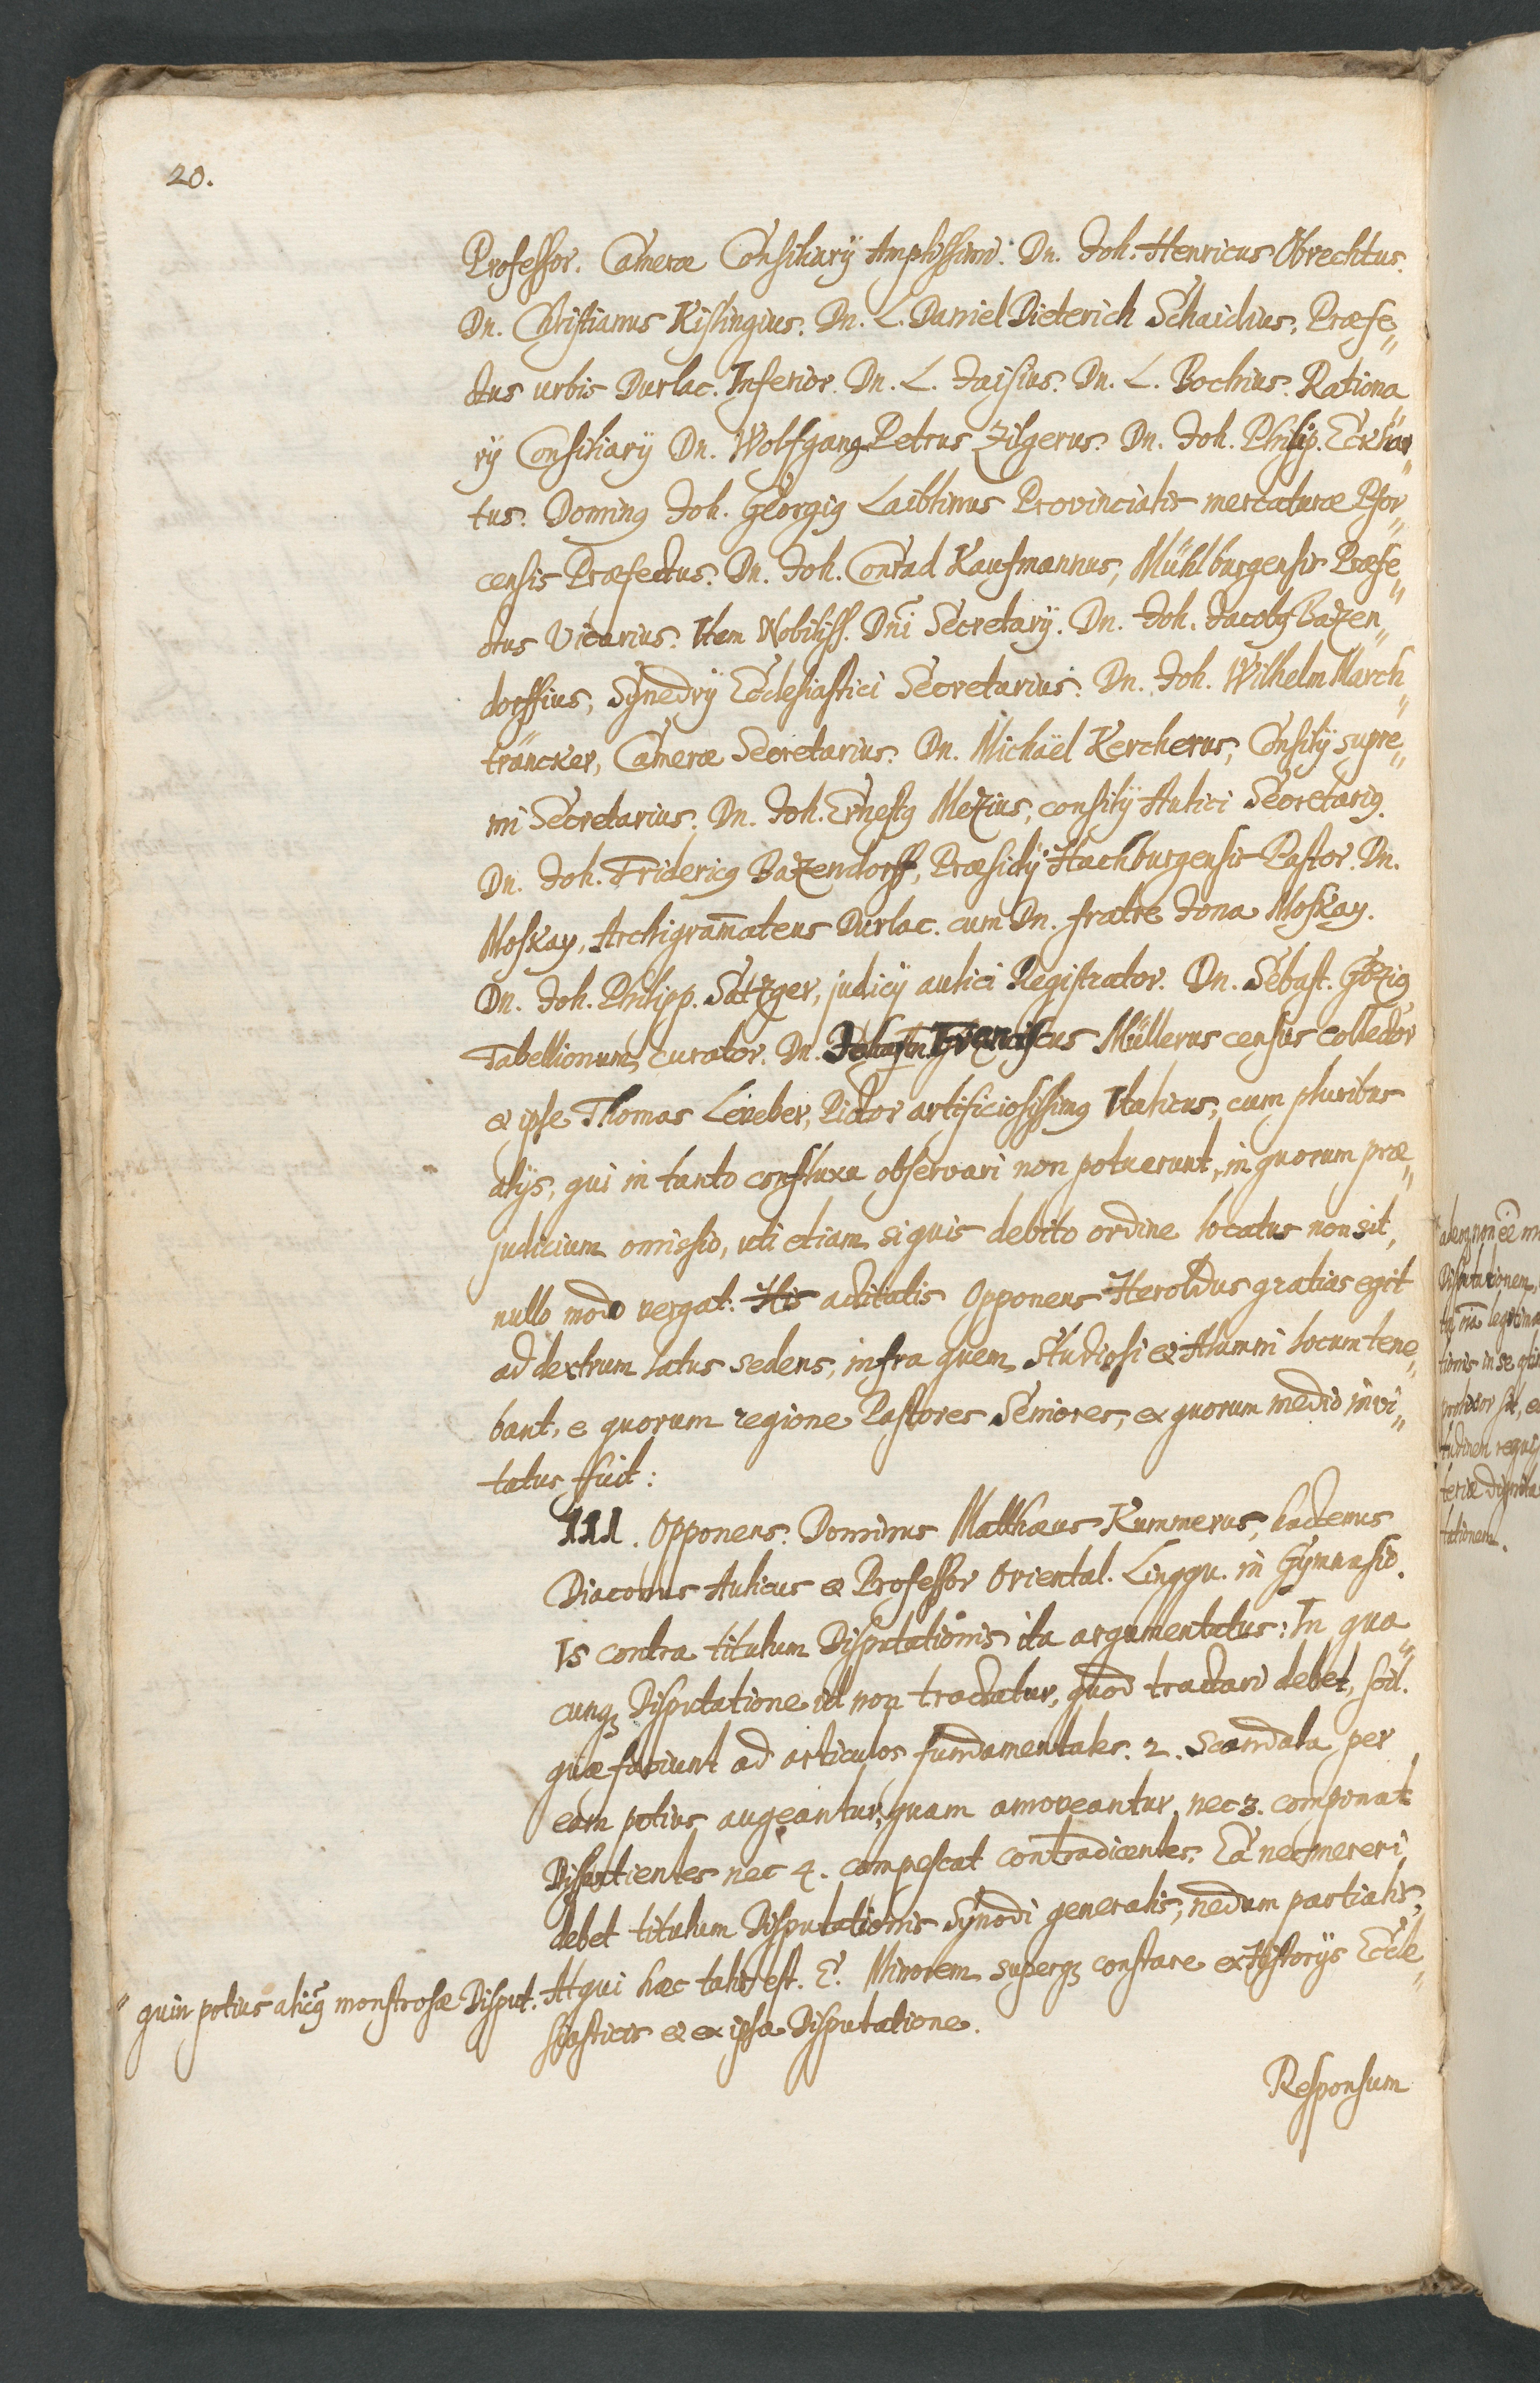 20.
Professor. Cameræ Consiliarÿ Amplissimi. Dn. Joh. Henricus Obrechtus.
Dn. Christianus Kislingius. Dn. L. Daniel Dieterich Schaidius, Præfe„
ctus urbis Durlac. Inferior. Dn. L. Jaisius. Dn. L. Bochius. Rationa„
rÿ Consiliarÿ Dn. Wolfgang Petrus Zilgerus. Dn. Joh. Philip. Eckhar„
tus. Dominꝰ Joh. Georgiꝰ Laiblinus Provincialis mercaturæ Pfor„
censis Præfectus. Dn. Joh. Conrad Kaufmannus, Mühlburgensis Præfe„
ctus Vicarius. Item Nobiliss. Dn̄i Secretarÿ. Dn. Joh. Jacobꝰ Bazen„
dorffius, Synedrÿ Ecclesiastici Secretarius. Dn. Joh. Wilhelm March„
träncker, Cameræ Secretarius. Dn. Michaël Kercherus, Consilÿ supre„
mi Secretarius. Dn. Joh. Ernestꝰ Mezius, consilÿ Aulici Secretariꝰ.
Dn. Joh. Fridericꝰ Bazendorff, Præsidÿ Hachburgensis Pastor. Dn.
Moskay, Archigram̄ateus Durlac. cum Dn. fratre Jona Moskay.
Dn. Joh. Philipp. Satzger, judicÿ aulici Registrator. Dn. Sebast. Göziꝰ
Tabellionum curator. Dn. Franciscus Müllerus census collector
& ipse Thomas Lereber, Pictor artificiosissimꝰ Italicus, cum pluribus
alÿs, qui in tanto confluxu observari non potuerunt, in quorum præ„
judicium omissio, uti etiam si quis debito ordine locatus non sit,
nullo modo vergat. His actitatis Opponens Heroldus gratias egit
ad dextrum latus sedens, infra quem Studiosi & Alumni locum tene„
bant, e quorum regione Pastores Seniores, ex quorum medio invi„
tatus fuit:
III. Opponens. Dominus Matthæus Kummerus, hactenus
Diaconus Aulicus & Professor Oriental. Linggu. in Gymnasio.
Is contra titulum Disputationis ita argumentatus: In qua„
cunqꝫ Disputatione id non tractatur, quod tractari debet, scil.
quæ faciunt ad articulos fundamentales. 2. Scandala per
eam potius augeantur, quam amoveantur, nec 3. componat
Dissentientes nec 4. compescat contradicentes. Ea nec mereri
debet titulum Disputationis Synodi generalis, nedum partialis,
" quin potius alicꝰ monstrosæ Disput. Atqui hæc talis est. E. Minorem superqꝫ constare ex Historÿs Eccle„
siasticis & ex ipsa Disputatione.
Responsum